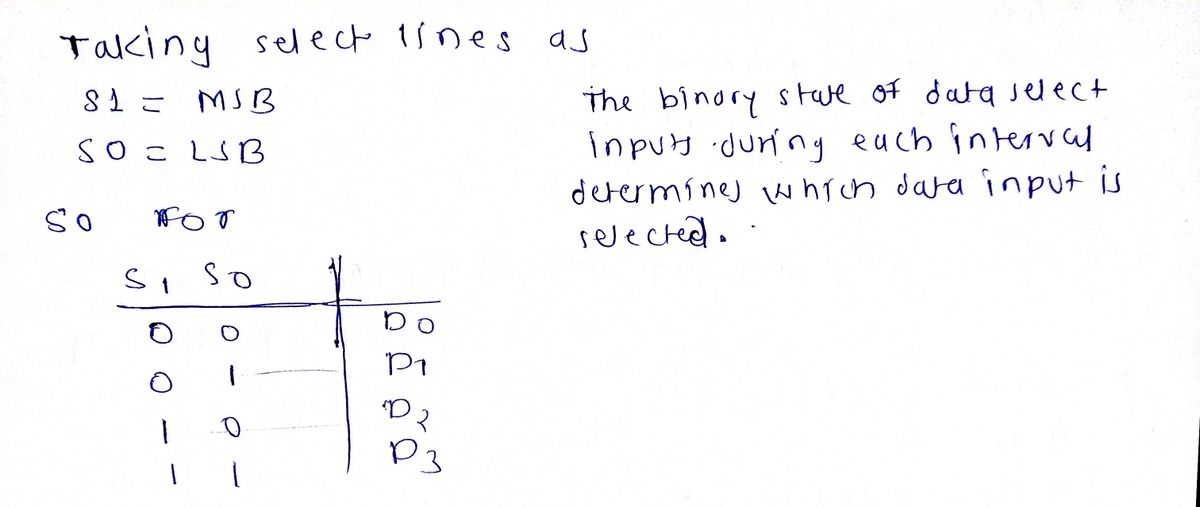 Taking select lines as
S1 = MSB
S0 = LSB
The binary state of data select
inputs during each interval
determines which data input is
selected.
SO FOr
S1 S0
0 0 D0
0 1 D1
1 0 D2
1 1 D3